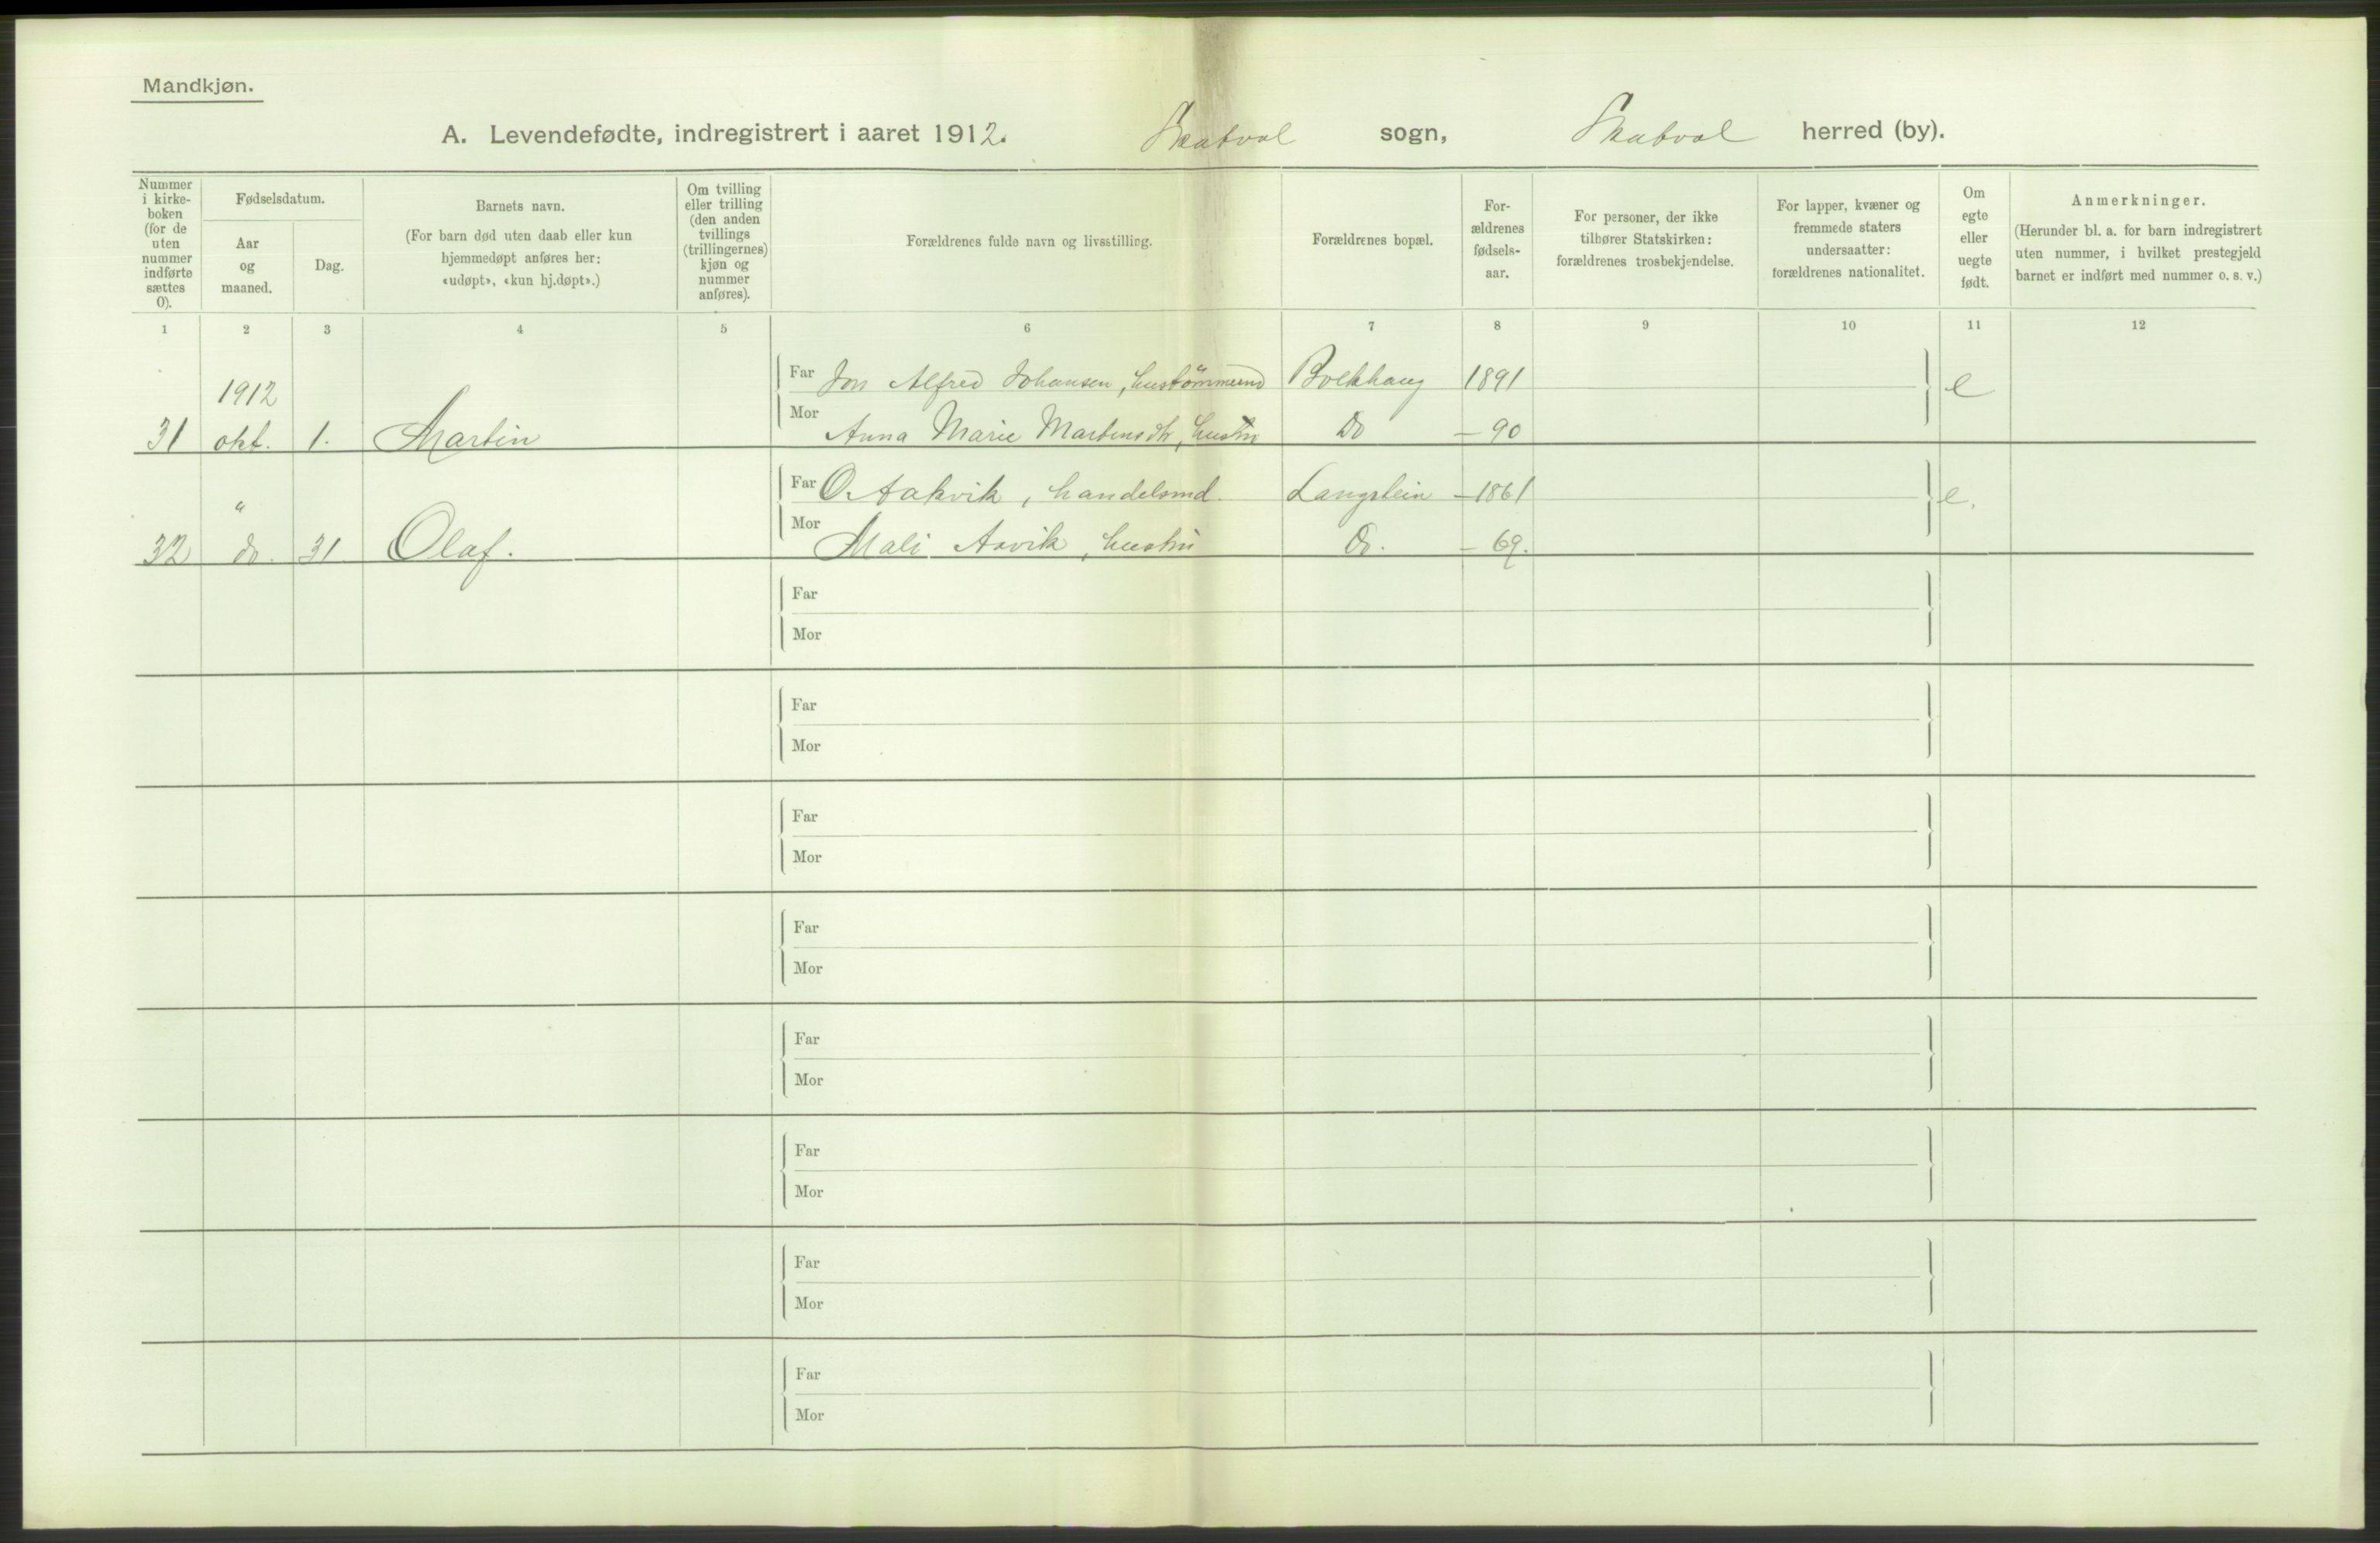 Mandkjøn.
A. Levendefødte, indregistrert i aaret 1912. Skatval sogn, Skatval herred (by).
Nummer i kirke- boken (for de uten nummer indførte sættes 0).
Fødselsdatum.
Aar og maaned.
Dag.
Barnets navn.
(For barn død uten daab eller kun hjemmedøpt anføres her: «udøpt», «kun hj.døpt».)
Om tvilling eller trilling (den anden tvillings (trillingernes) kjøn og nummer anføres).
Forældrenes fulde navn og livsstilling.
Forældrenes bopæl.
For- ældrenes fødsels- aar.
For personer, der ikke tilhører Statskirken: forældrenes trosbekjendelse.
For lapper, kvæner og fremmede staters undersaatter: forældrenes nationalitet.
Om egte eller uegte født.
Anmerkninger.
(Herunder bl. a. for barn indregistrert uten nummer, i hvilket prestegjeld barnet er indført med nummer o. s. v.)
1 2 3 4 5 6 7 8 9 10 11 12
1912 Far Jon Alfred Johansen, 1891 e
31 okt. 1. Martin Mor Anna Marie Martinsdtr, hustru Do — 90
" Far O. Aakvik, handelsmd. Langstein — 1861 e.
32 do. 31 Olaf. Mor Mali Aavik, hustru Do. — 69.
Far
Mor
Far
Mor
Far
Mor
Far
Mor
Far
Mor
Far
Mor
Far
Mor
Far
Mor